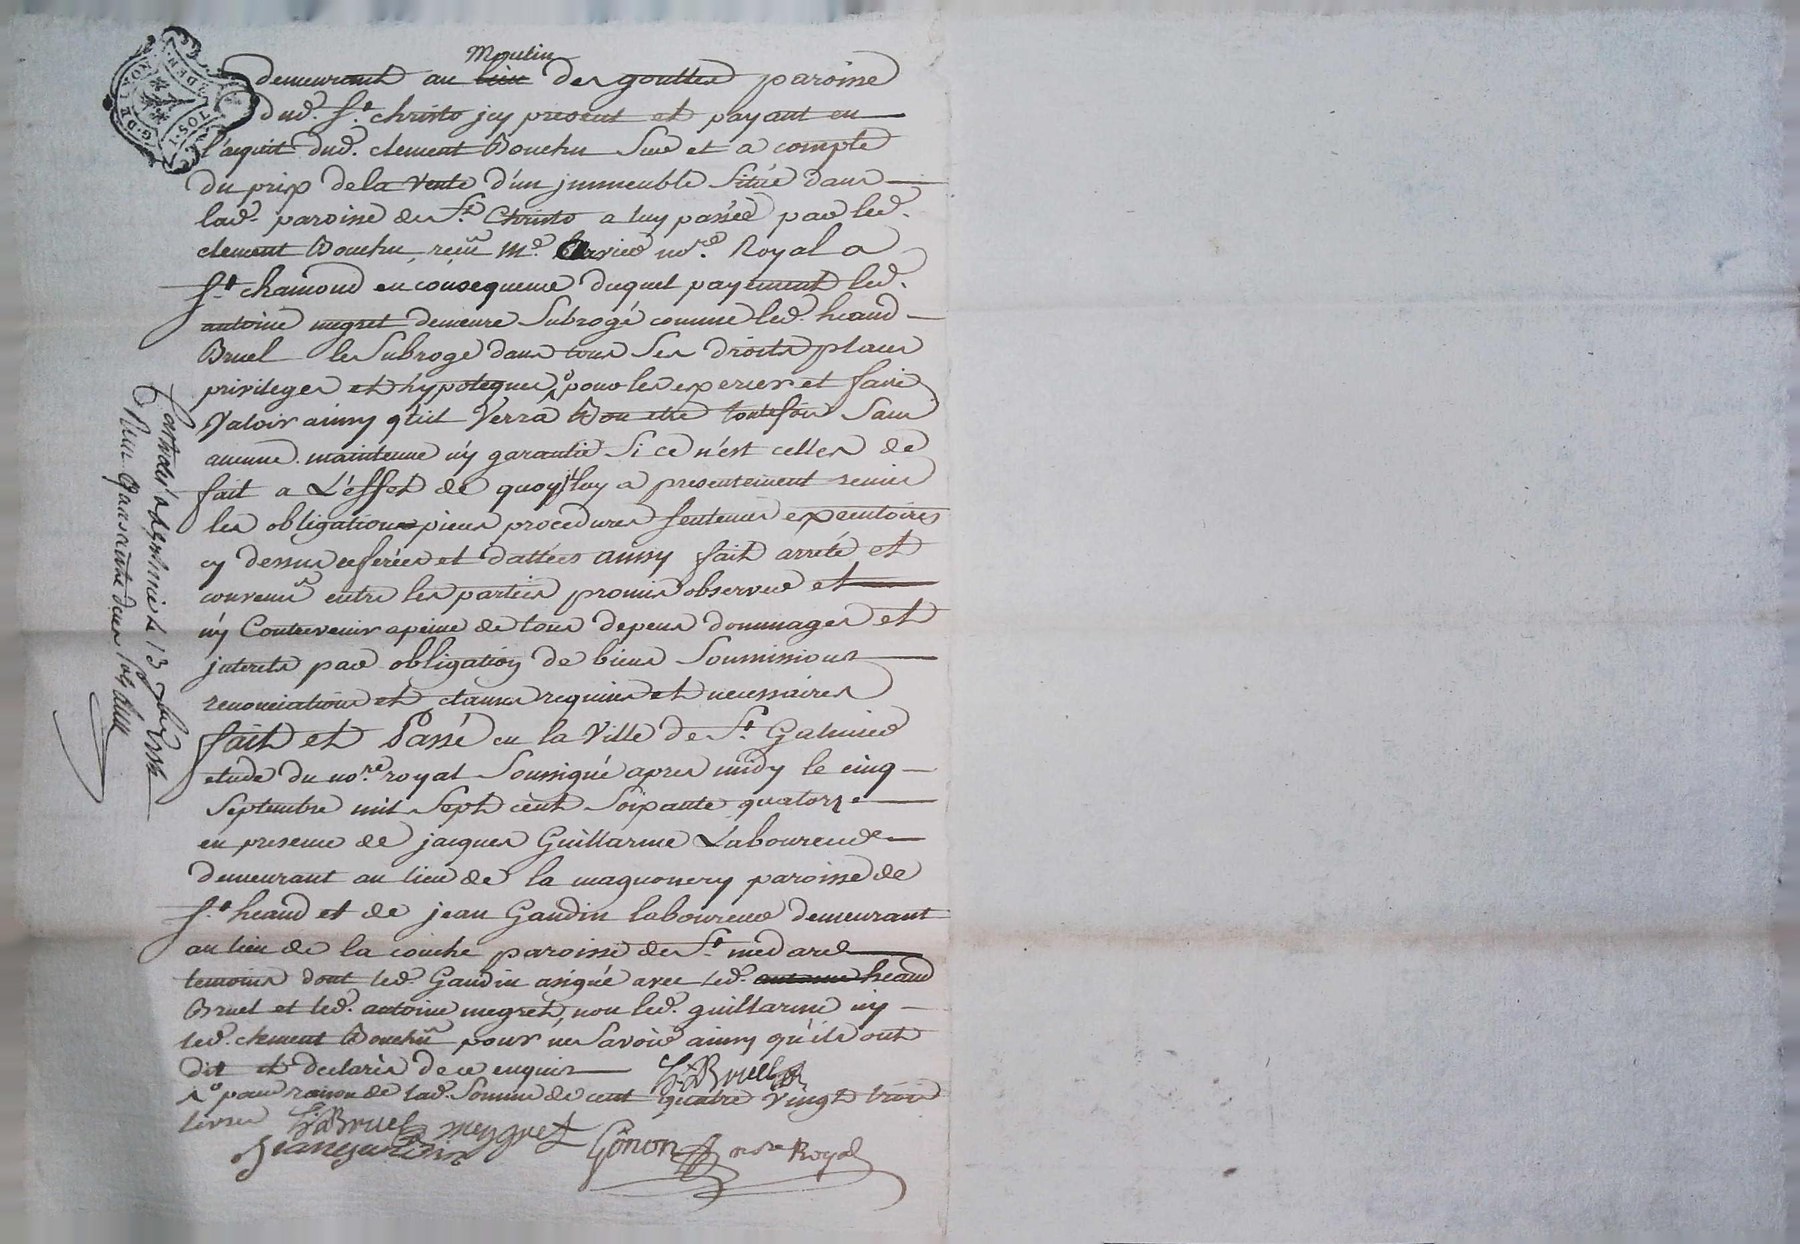 Moulin
demeurant au lieu des gouttes paroisse
dud. St. christo icy present et payant en
l'aquit dud. clement Bouchu Sur et a compte
du prix de la Vente d'un immeuble Situé dans
lad. paroisse de St. Christo a luy passée par led.
clement Bouchu, reçüe Me. no.re Royal a
St. chamond en consequence duquel payement led.
antoine megret demeure Subrogé comme led. heand
Bruel le Subroge dans tous Ses droits places
privileges et hypoteques, pour les exercer et faire
Valoir ainsy qu'il Verra Bon etre toutefois Sans
aucune maintenue n'y garantie Si ce n'est celles de
fait a L'effet de quoy il luy a presentement remis
les obligations pieces procedures Sentences executoires
cy dessus referées et dattées ainsy fait arreté et
convenu entre les parties promis observer et
n'y Contrevenir a peine de tous depens dommages et
interets par obligation de biens Soumissions
renonciations et clauses requises et necessaires
fait et Passé en la Ville de St. Galmier
etude du no.re royal Soussigné apres midy le cinq
Septembre mil Sept cent Soixante quatorze
en presence de jacques Guillarme Laboureur
demeurant au lieu de la magnonery paroisse de
St. heand et de jean Gaudin laboureur demeurant
au lieu de la conche paroisse de St. medard
temoins dont led. Gaudin a signé avec led. heand
Bruel et led. antoine megret, non led. guillarme n'y
led. clement Bouchu pour ne Savoir ainsy qu'ils ont
dit et declaré de ce enquis h. Bruel
pour raison de lad. Somme de cent quatre Vingt trois
livres h. Bruel meygret
Jean gaudin Gonon no.re Royal
a St. le 13 7bre 1774